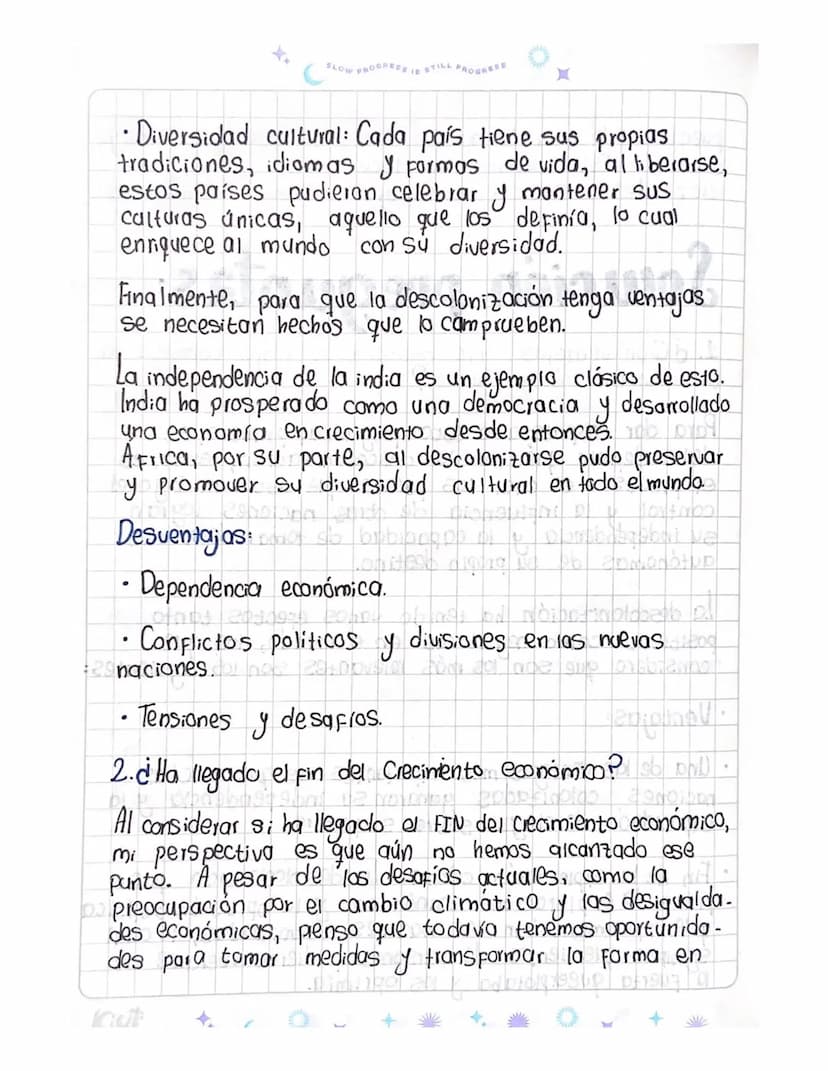 SLOW PROGRESS IS STILL PROGRESS
· Diversidad cultural: Cada país tiene sus propias
tradiciones, idiomas y formas de vida, al liberarse,
estos países pudieron celebrar y mantener sus
culturas únicas, aquello que los definía, lo cual
enriquece al mundo con su diversidad.
Finalmente, para que la descolonización tenga ventajas
se necesitan hechos que lo comprueben.
La independencia de la india es un ejemplo clásico de esto.
India ha prosperado como una democracia y desarrollado
una economía en crecimiento desde entonces.
África, por su parte, al descolonizarse pudo preservar
y promover su diversidad cultural en todo el mundo.
Desventajas:
· Dependencia económica.
· Conflictos políticos y divisiones en las nuevas
naciones.
· Tensiones y desafíos.
2. ¿Ha llegado el fin del crecimiento económico?
Al considerar si ha llegado el FIN del crecimiento económico,
mi perspectiva es que aún no hemos alcanzado ese
punto. A pesar de los desafíos actuales, como la
preocupación por el cambio climático y las desigualda-
des económicas, pienso que todavía tenemos oportunida-
des para tomar medidas y transformar la forma en